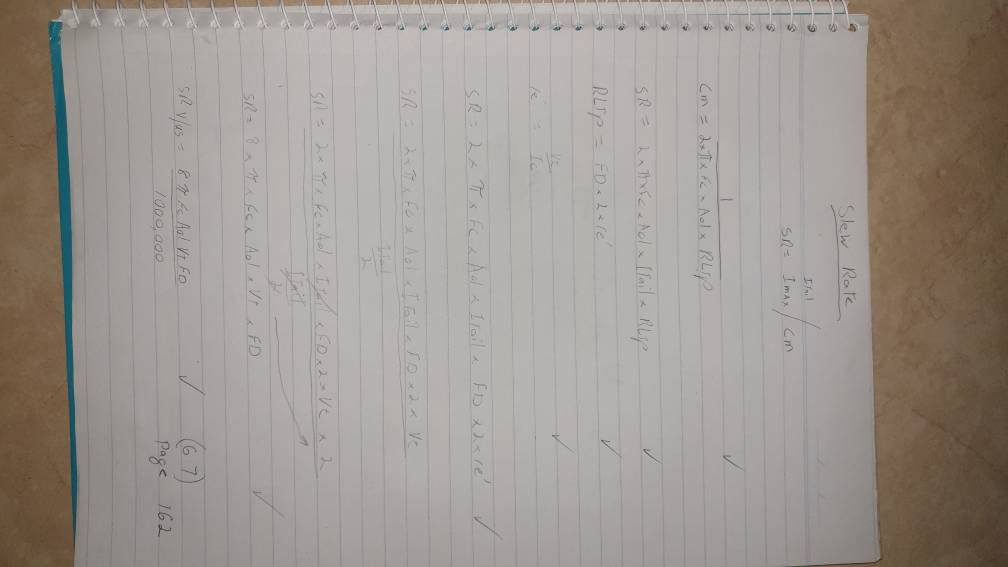 Slew Rate
SR = Imax / Cm
ITail
Cm = 1 / 2 x π x Fc x Aol x RLTP ✓
SR = 2 x π x Fc x Aol x ITail x RLTP ✓
RLTP = FD x 2 x re' ✓
re' = Vt ✓
SR = 2 x π x Fc x Aol x ITail x FD x 2 x re' ✓
SR = 2 x π x Fc x Aol x ITail x FD x 2 x Vt
ITail / 2
SR = 2 x π x Fc x Aol x ITail x FD x 2 x Vt x 2
ITail / 2
SR = 8 x π x Fc x Aol x Vt x FD ✓
SR V/us = 8 π Fc Aol Vt FD / 1000,000 ✓ (6 7)
Page 162